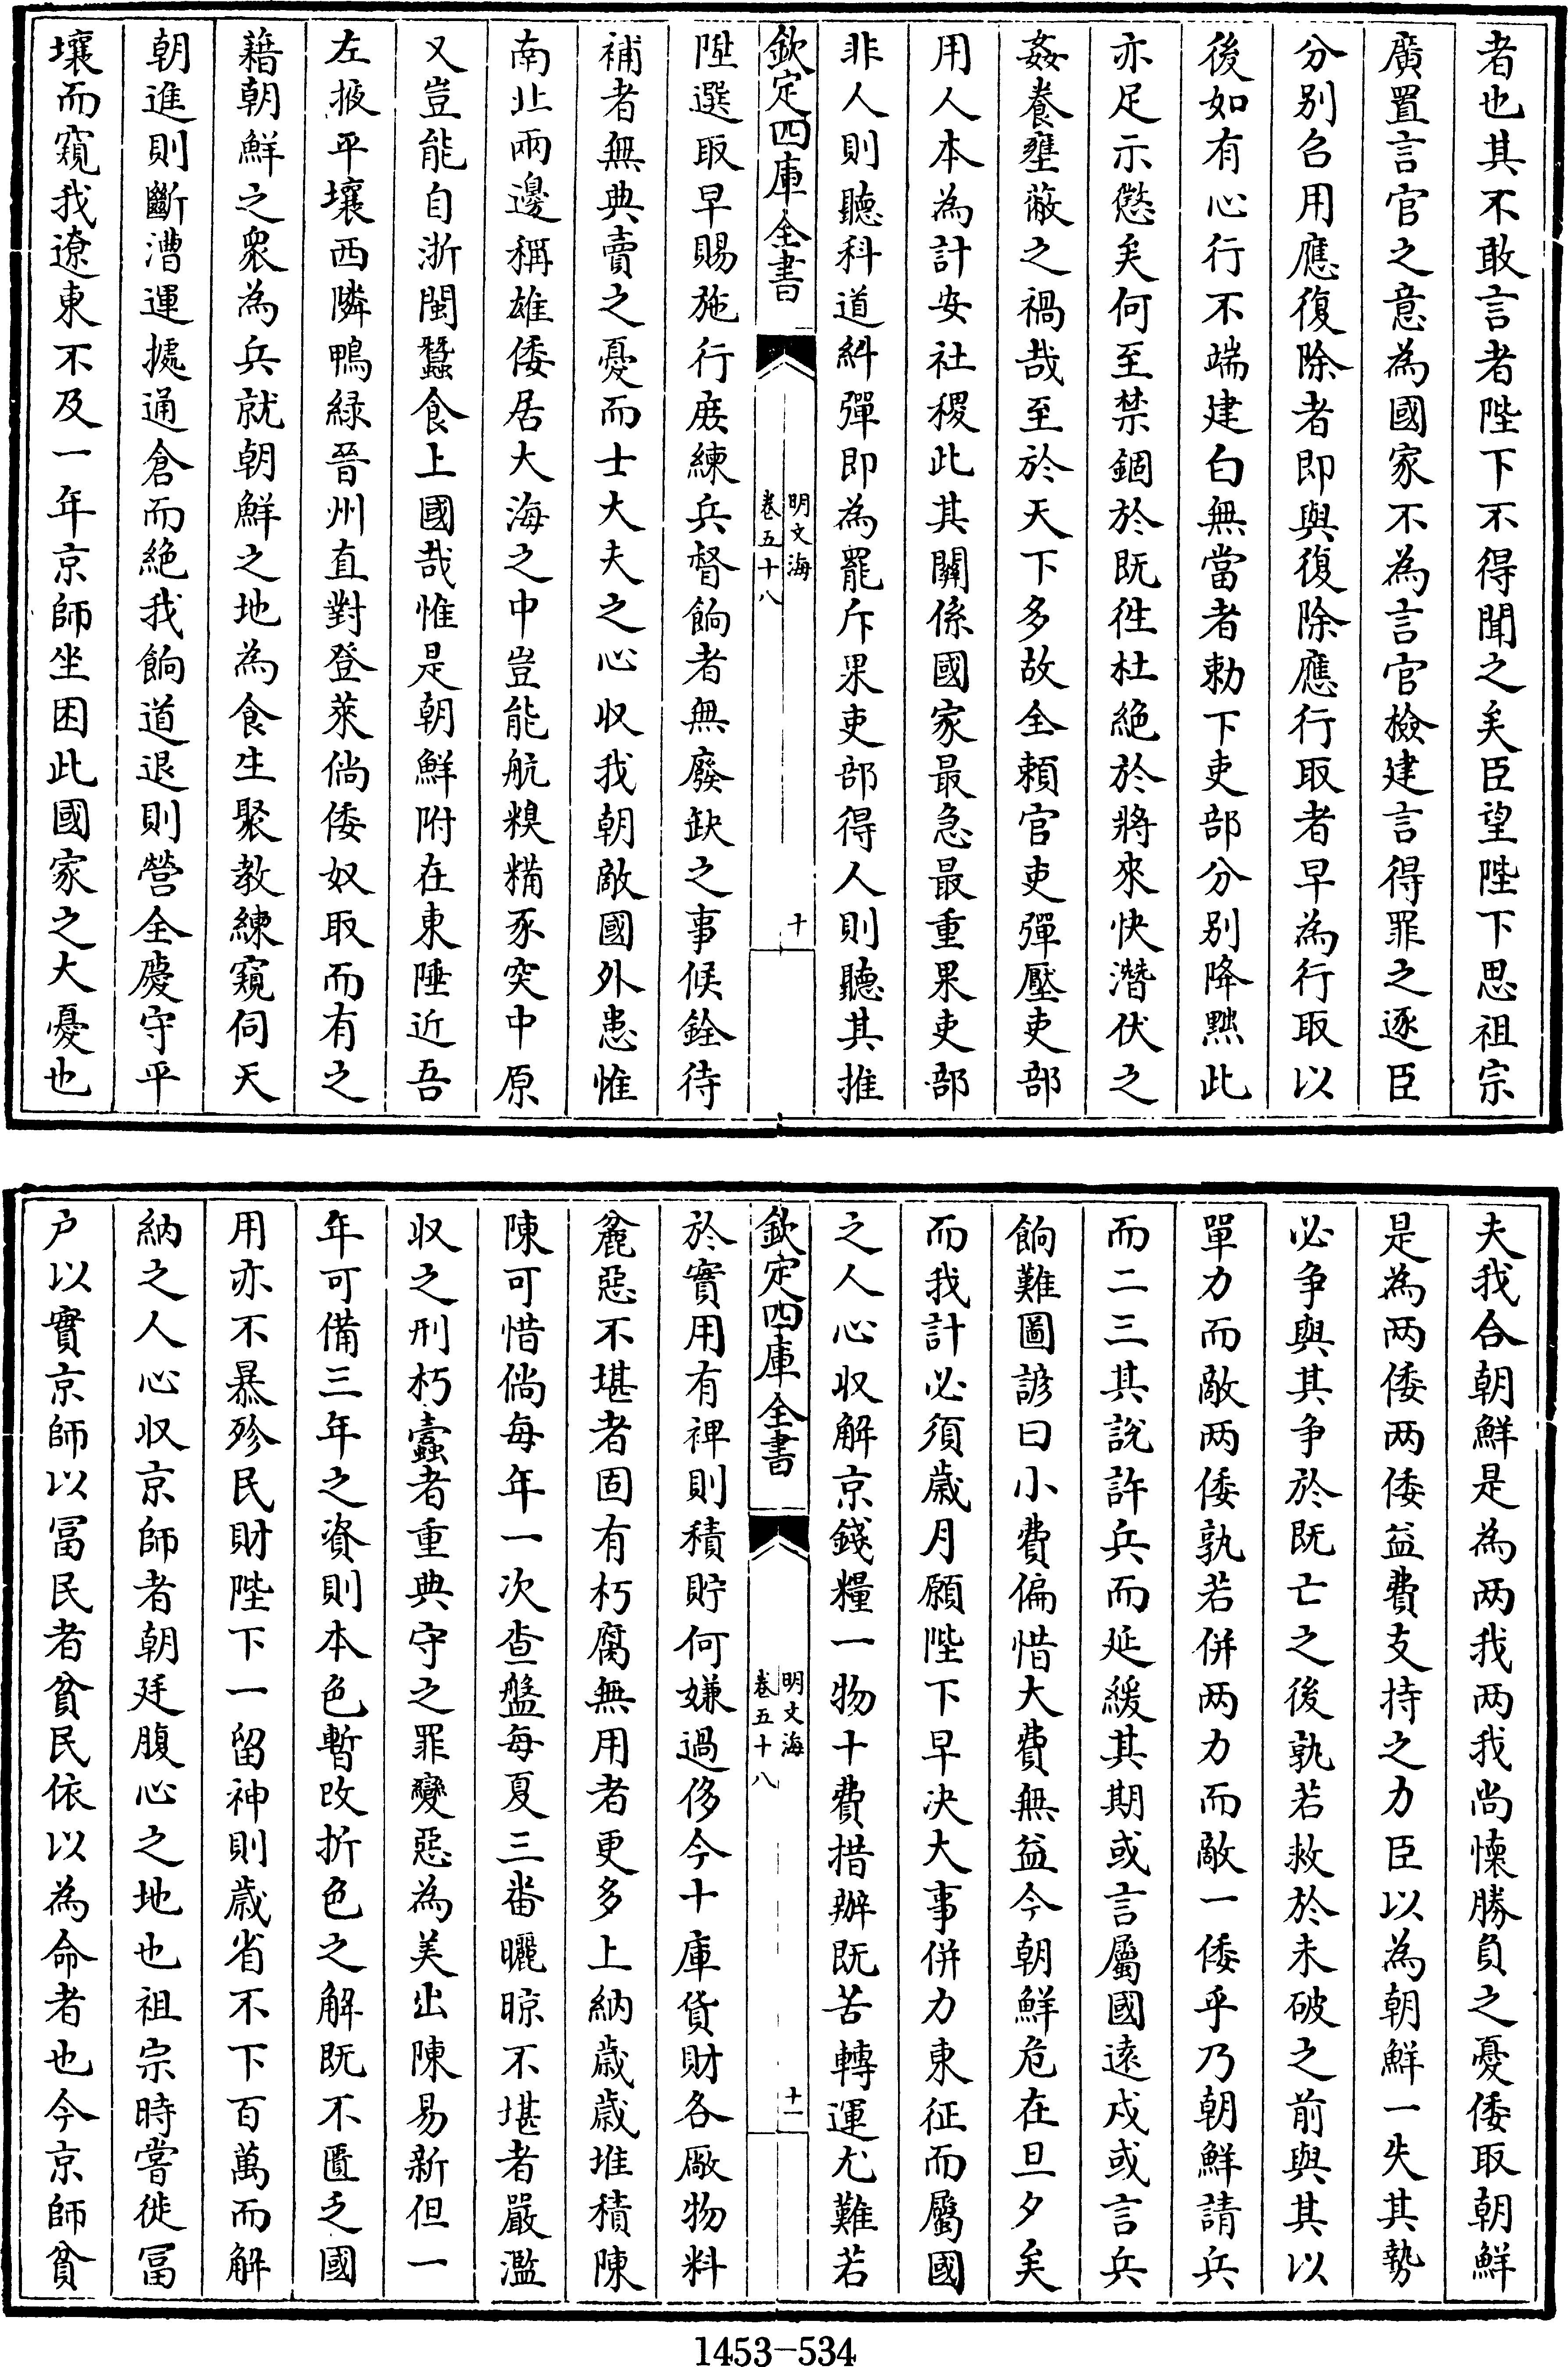 者也其不敢言者陛下不得聞之矣臣望陛下思祖宗
廣置言官之意為國家不為言官檢建言得罪之逐臣
分别召用應復除者即與復除應行取者早為行取以
後如有心行不端建白無當者勅下吏部分别降黜此
亦足示懲矣何至禁錮於既徃杜絶於將來快潛伏之
姦養壅蔽之禍哉至於天下多故全頼官吏彈壓吏部
用人本為計安社稷此其關係國家最急最重果吏部
非人則聽科道糾彈即為罷斥果吏部得人則聽其推
欽定四庫全書
明文海
卷五十八
十
陞選取早賜施行庻練兵督餉者無廢缺之事候銓待
補者無典賣之憂而士大夫之心収我朝敵國外患惟
南北兩邊稱雄倭居大海之中豈能航糗糒豕突中原
又豈能自浙閩蠶食上國哉惟是朝鮮附在東陲近吾
左掖平壤西隣鴨緑晉州直對登萊倘倭奴取而有之
藉朝鮮之衆為兵就朝鮮之地為食生聚教練窺伺天
朝進則斷漕運據通倉而絶我餉道退則營全慶守平
壤而窺我遼東不及一年京師坐困此國家之大憂也
夫我合朝鮮是為两我两我尚懐勝負之憂倭取朝鮮
是為两倭两倭益費支持之力臣以為朝鮮一失其勢
必争與其争於既亡之後孰若救於未破之前與其以
單力而敵两倭孰若併两力而敵一倭乎乃朝鮮請兵
而二三其説許兵而延緩其期或言屬國遠戍或言兵
餉難圖諺曰小費偏惜大費無益今朝鮮危在旦夕矣
而我計必須歳月願陛下早決大事併力東征而屬國
之人心収解京錢糧一物十費措辦既苦轉運尤難若
欽定四庫全書
明文海
卷五十八
十一
於實用有禆則積貯何嫌過侈今十庫貨財各厰物料
麄惡不堪者固有朽腐無用者更多上納歳歳堆積陳
陳可惜倘每年一次查盤每夏三畨曬晾不堪者嚴濫
収之刑朽蠧者重典守之罪變惡為美出陳易新但一
年可備三年之資則本色暫改折色之解既不匱乏國
用亦不暴殄民財陛下一留神則歳省不下百萬而解
納之人心収京師者朝廷腹心之地也祖宗時嘗徙冨
户以實京師以冨民者貧民依以為命者也今京師貧
1453-534